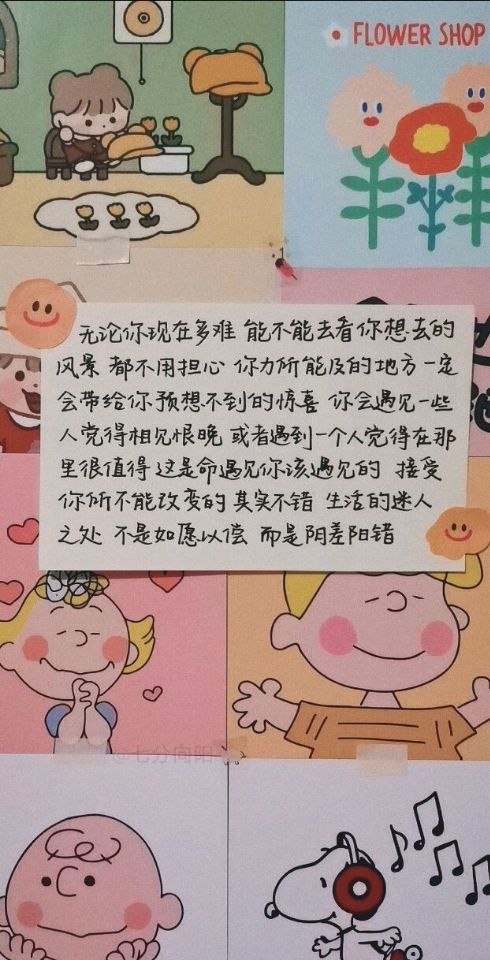 FLOWER SHOP
无论你现在多难 能不能去看你想去的
风景 都不用担心 你力所能及的地方 一定
会带给你预想不到的惊喜 你会遇见一些
人觉得相见恨晚 或者遇到一个人觉得在那
里很值得 这是命遇见你该遇见的 接受
你所不能改变的 其实不错 生活的迷人
之处 不是如愿以偿 而是阴差阳错
@七分向阳